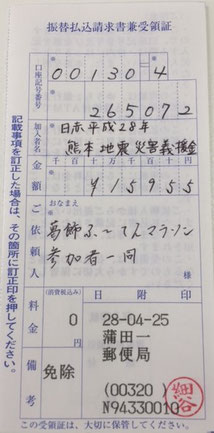 振替払込請求書兼受領証
口座記号番号
00130-4
265072
加入者名
日赤平成28年
熊本地震災害義援金
金額
千 百 十 万 千 百 十 円
¥15955
ご依頼人
おなまえ
葛飾ふ~てんマラソン
参加者一同
様
料金
(消費税込み)
0
円
備考
免除
日附印
28-04-25
蒲田一
郵便局
(00320)
N94330010
細谷
記載事項を訂正した場合は、その箇所に訂正印を押してください。
この受領証は、大切に保管してください。